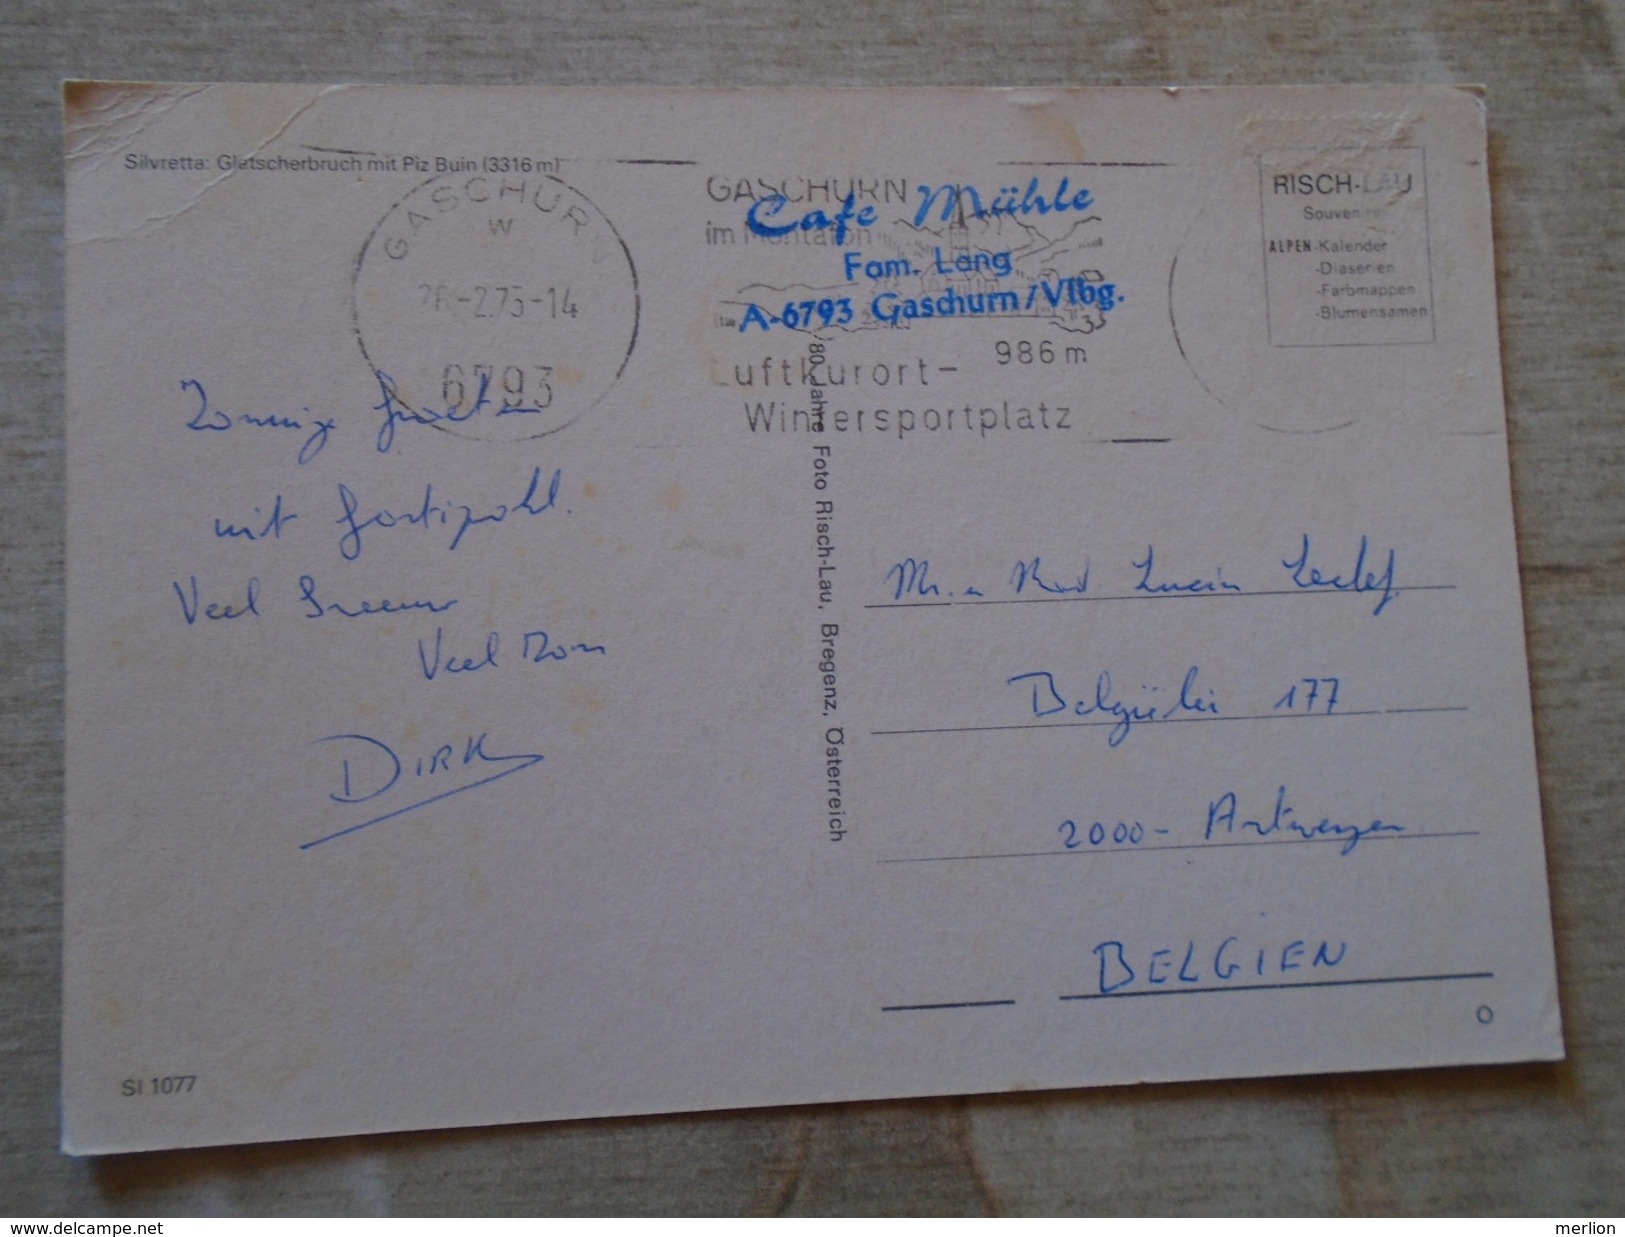 Silvretta: Gletscherbruch mit Piz Buin (3316 m)
GASCHURN
W
-2.75-14
6793
GASCHURN
im Montafon
986 m
Luftkurort-
Wintersportplatz
Cafe Mühle
Fam. Lang
A-6793 Gaschurn/Vlbg.
RISCH-LAU
Souvenirs
ALPEN-Kalender
-Diaserien
-Farbmappen
-Blumensamen
Zonnige Groeten
mit
Veel Sneeuw
Veel Zon
DIRK
80 Jahre Foto Risch-Lau, Bregenz, Österreich
Mr. Lucien
177
2000- Antwerpen
BELGIEN
O
SI 1077
delcampe.net
merlion